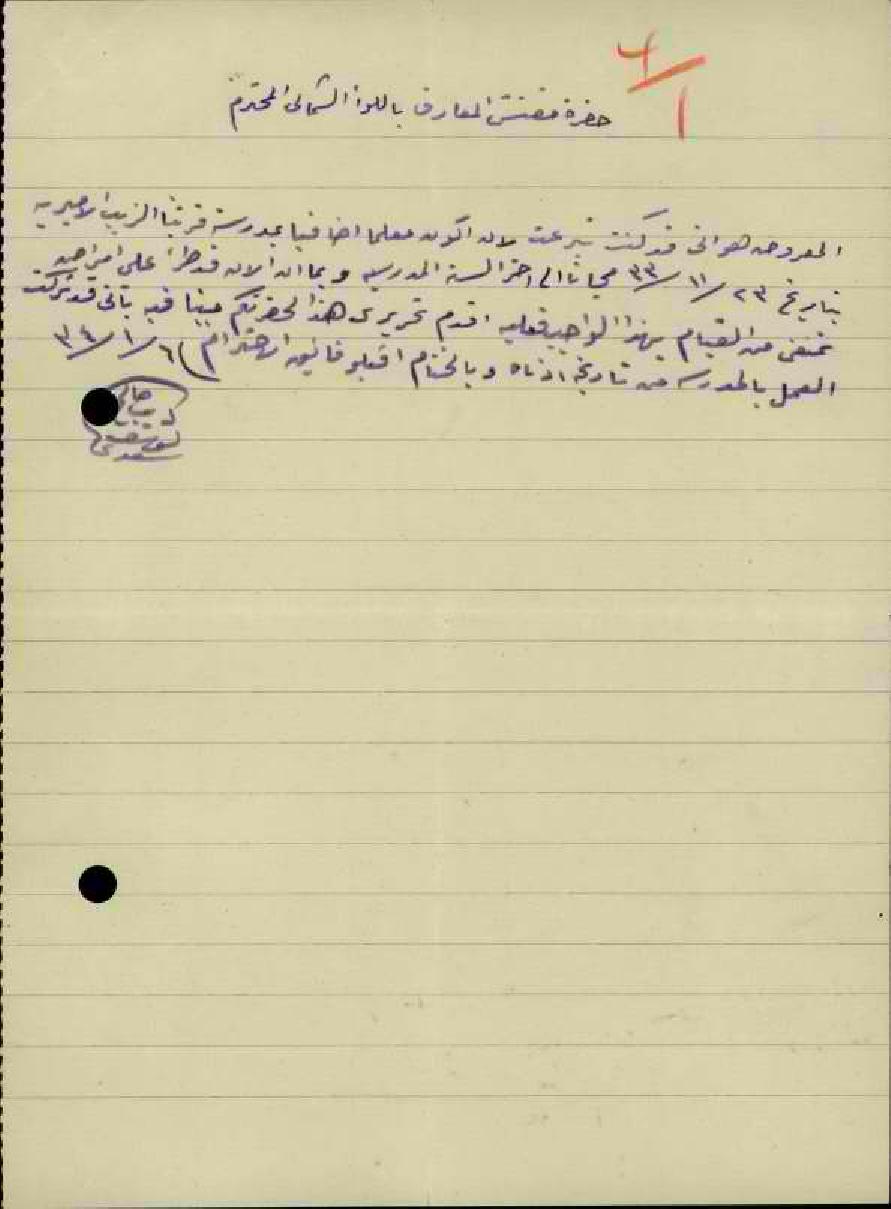 ٦/١
حضرة مفتش المعارف باللواء الشمالي المحترم
المعروض هو اني قد كنت تبرعت لان اكون معلما اضافيا بمدرسة قريتنا الزيب الاميريه
بتاريخ ٢٣/١١/٣٣ مجانا الى اخر السنة المدرسيه وبما ان الان قد طرأ على امر اجد
تمنعني من القيام بهذا الواجب فعليه اقدم تحريري هذا لحضرتكم مبينا فيه باني قد تركت
العمل بالمدرسه من تاريخه ادناه وبالختام اقبلو فائق الاحترام ٦/١/٣٤